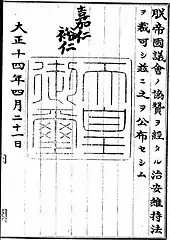 朕帝國議會ノ協賛ヲ經タル治安維持法
ヲ裁可シ茲ニ之ヲ公布セシム
嘉仁
裕仁
天皇
御璽
大正十四年四月二十一日